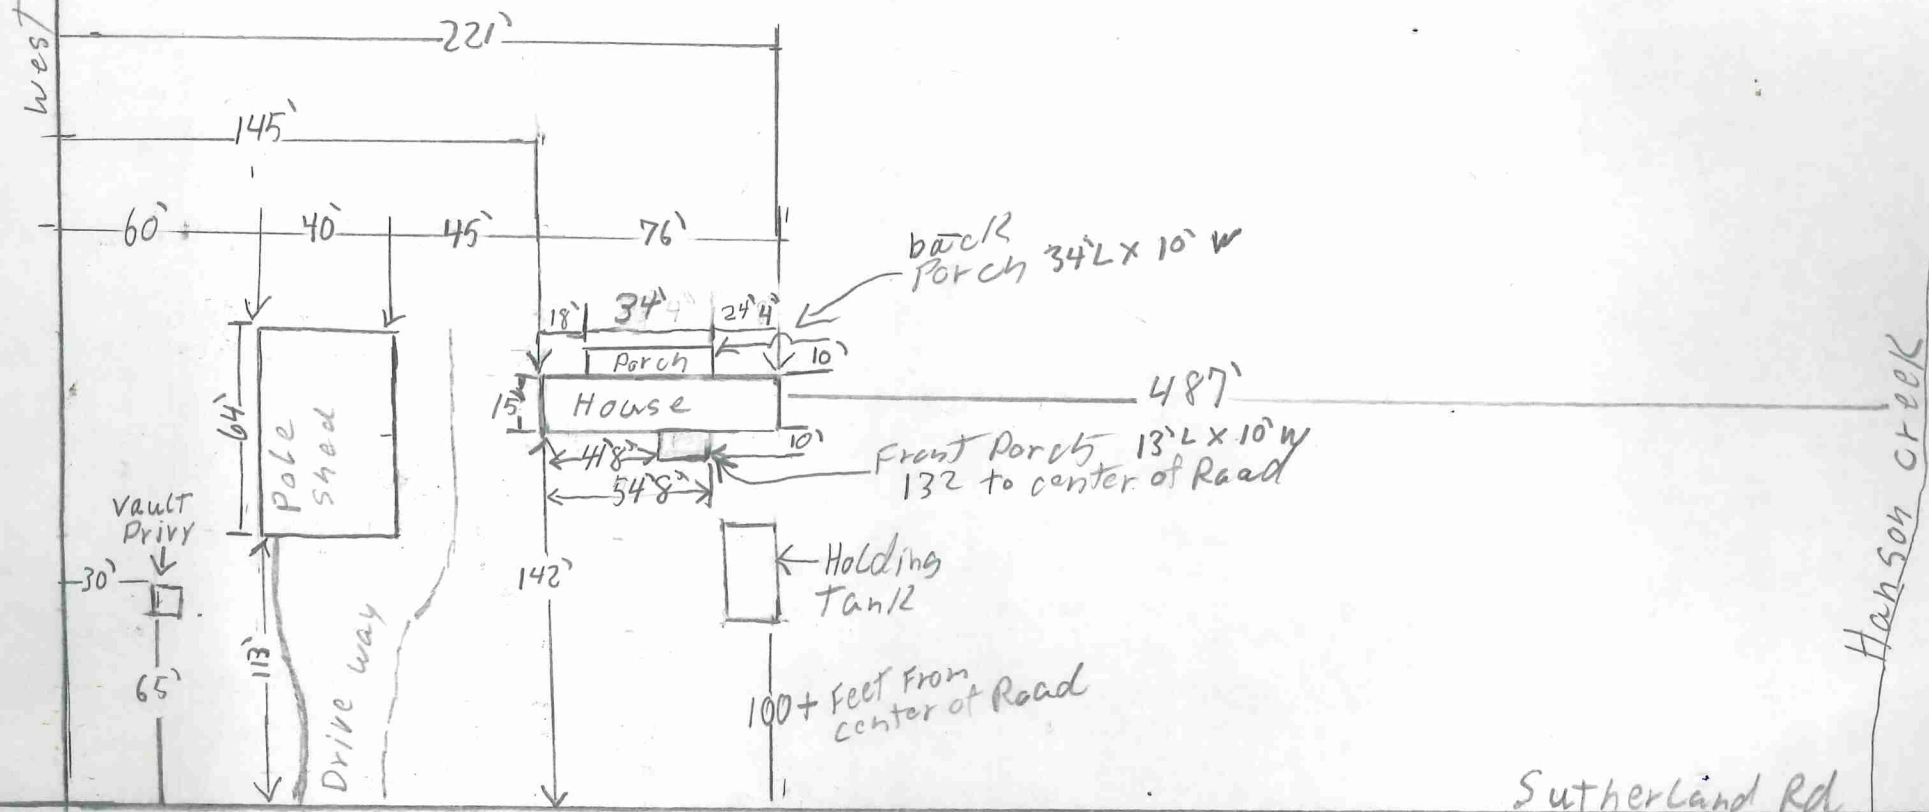 West
221'
145'
60' 40' 45' 76'
back
Porch 34'L x 10' W
18' 34' 24'4"
Porch
10'
House
15'
487'
64'
Pole
Shed
10'
41'8"
54'8"
Front Porch 13'L x 10'W
132 to center of Road
Vault
Privy
30'
65'
113'
Drive way
142'
Holding
Tank
100+ Feet From
center of Road
Hanson Creek
Sutherland Rd